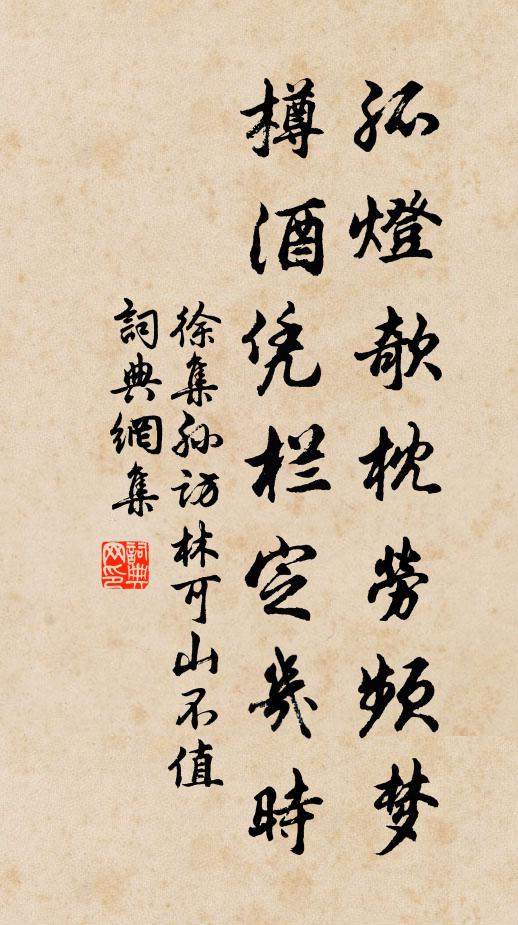 孤燈欹枕勞頻梦
樽酒凭栏定幾時
徐集孙訪林可山不值
詞典網集
詞典网印